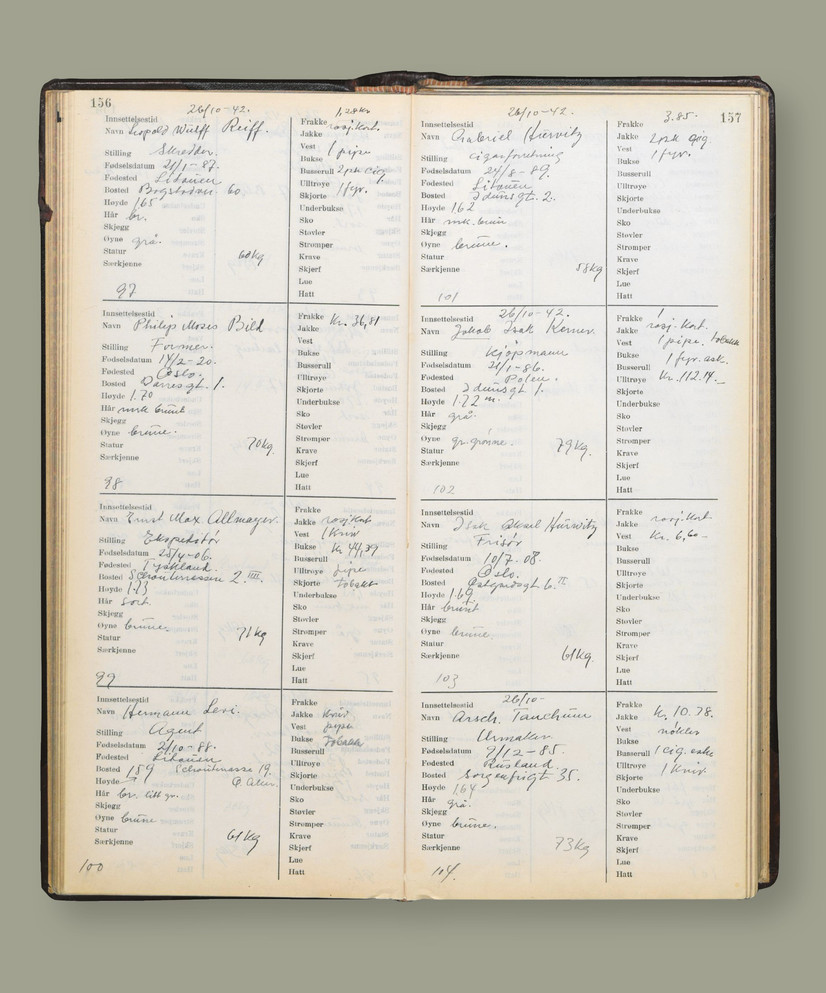 156
26/10-42.
Innsettelsestid
Navn Leopold Wulff Reiff.
Stilling Skredder.
Fødselsdatum 21/1-87.
Fødested Litauen
Bosted Bogstadvn. 60
Høyde 165
Hår br.
Skjegg
Øyne grå.
Statur 60kg
Særkjenne
97
Frakke rasj.kort.
Jakke
Vest 1 pipe
Bukse
Busserull 2pk cig.
Ulltrøye 1 fyr.
Skjorte
Underbukse
Sko
Støvler
Strømper
Krave
Skjerf
Lue
Hatt
Innsettelsestid
Navn Philip Moses Bild
Stilling Former.
Fødselsdatum 14/2-20.
Fødested Oslo.
Bosted Darresgt. 1.
Høyde 1.70
Hår mrk brunt
Skjegg
Øyne brune.
Statur 70kg
Særkjenne
98
Frakke Kr. 36,81
Jakke
Vest
Bukse
Busserull
Ulltrøye
Skjorte
Underbukse
Sko
Støvler
Strømper
Krave
Skjerf
Lue
Hatt
Innsettelsestid
Navn Ernst Max Allmayer.
Stilling Ekspeditør
Fødselsdatum 25/4-06.
Fødested Tyskland.
Bosted 2 IIII.
Høyde 1.73
Hår sort.
Skjegg
Øyne brune.
Statur 71kg
Særkjenne
99
Frakke
Jakke rasj.kort
Vest 1 kniv
Bukse Kr 44,39
Busserull
Ulltrøye pipe
Skjorte tobakk
Underbukse
Sko
Støvler
Strømper
Krave
Skjerf
Lue
Hatt
Innsettelsestid
Navn Hermann Levi.
Stilling Agent
Fødselsdatum 2/10-88.
Fødested Litauen
Bosted 19.
Høyde 159
Hår br. litt gr.
Skjegg
Øyne brune
Statur 61kg
Særkjenne
100
Frakke
Jakke kniv
Vest pipe
Bukse tobakk
Busserull
Ulltrøye
Skjorte
Underbukse
Sko
Støvler
Strømper
Krave
Skjerf
Lue
Hatt
157
26/10-42.
Innsettelsestid
Navn Gabriel Hurwitz
Stilling cigarforretning
Fødselsdatum 24/8-89.
Fødested Litauen
Bosted Idunsgt. 2.
Høyde 162
Hår mrk. brun
Skjegg
Øyne brune.
Statur
Særkjenne 58kg
101
3.85.
Frakke
Jakke 2pk cig.
Vest 1 fyr.
Bukse
Busserull
Ulltrøye
Skjorte
Underbukse
Sko
Støvler
Strømper
Krave
Skjerf
Lue
Hatt
26/10-42.
Innsettelsestid
Navn Jakob Isak Kerner.
Stilling Kjøpmann
Fødselsdatum 21/1-86.
Fødested Polen.
Bosted Idunsgt 1.
Høyde 1.72 m.
Hår grå.
Skjegg
Øyne gr.grønne.
Statur 79kg.
Særkjenne
102
Frakke 1
Jakke rasj.kort.
Vest 1 pipe. tobakk
Bukse 1 fyr.esk.
Busserull
Ulltrøye Kr. 112.14.-
Skjorte
Underbukse
Sko
Støvler
Strømper
Krave
Skjerf
Lue
Hatt
Innsettelsestid
Navn Isak Aksel Hurwitz
Stilling Frisør
Fødselsdatum 10/7-08.
Fødested Oslo.
Bosted Østgaardsgt 6. II
Høyde 1.69
Hår brunt
Skjegg
Øyne brune.
Statur
Særkjenne 61kg.
103
Frakke
Jakke rasj.kort
Vest Kr. 6,60-
Bukse
Busserull
Ulltrøye
Skjorte
Underbukse
Sko
Støvler
Strømper
Krave
Skjerf
Lue
Hatt
26/10-
Innsettelsestid
Navn Arsch. Tanchum
Stilling Urmaker.
Fødselsdatum 9/12-85.
Fødested Rusland.
Bosted Sorgenfrigt 35.
Høyde 1.64
Hår grå.
Skjegg
Øyne brune.
Statur
Særkjenne 73kg
104.
Frakke
Jakke Kr. 10.78.
Vest nøkler
Bukse
Busserull 1 cig.eske
Ulltrøye 1 kniv
Skjorte
Underbukse
Sko
Støvler
Strømper
Krave
Skjerf
Lue
Hatt